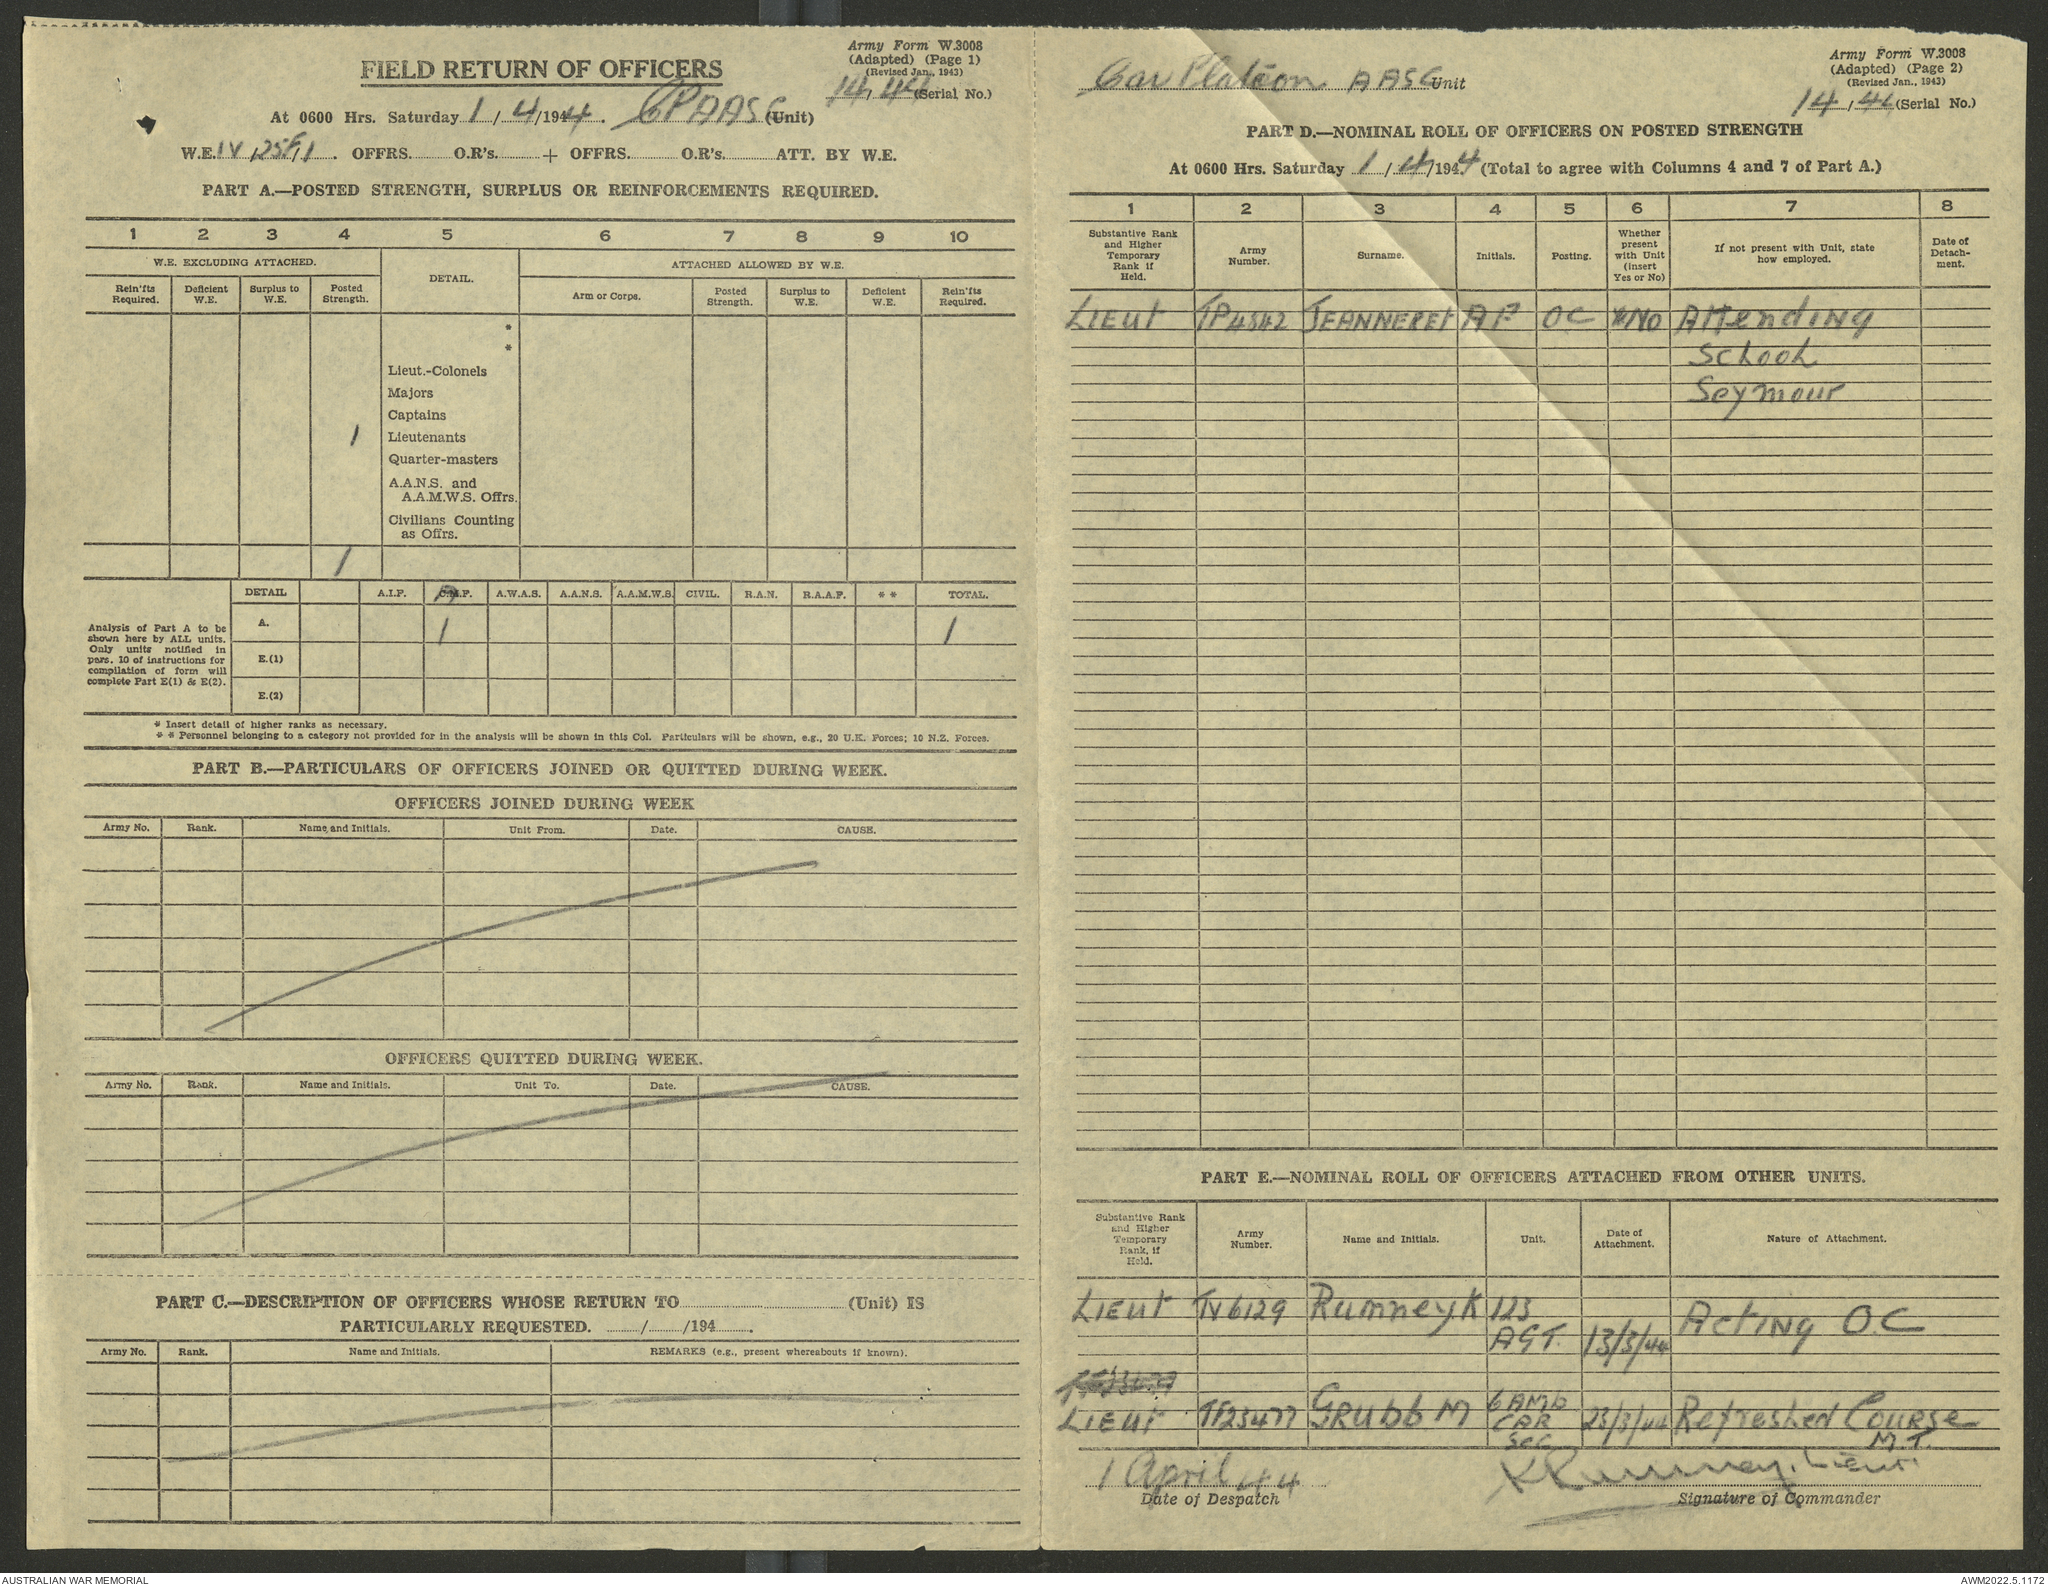 Army Form W.3008
(Adapted) (Page 1)
(Revised Jan., 1943)
14/44 (Serial No.)
FIELD RETURN OF OFFICERS
At 0600 Hrs. Saturday 1/4/1944. CP AASC (Unit)
W.E. OFFRS. O.R's. + OFFRS. O.R's. ATT. BY W.E.
PART A.—POSTED STRENGTH, SURPLUS OR REINFORCEMENTS REQUIRED.
1 2 3 4 5 6 7 8 9 10
W.E. EXCLUDING ATTACHED. DETAIL. ATTACHED ALLOWED BY W.E.
Rein'fts Required. Deficient W.E. Surplus to W.E. Posted Strength. Arm or Corps. Posted Strength. Surplus to W.E. Deficient W.E. Rein'fts Required.
*
*
Lieut.-Colonels
Majors
Captains
1 Lieutenants
Quarter-masters
A.A.N.S. and
A.A.M.W.S. Offrs.
Civilians Counting
as Offrs.
1
DETAIL A.I.F. C.M.F. A.W.A.S. A.A.N.S. A.A.M.W.S. CIVIL. R.A.N. R.A.A.F. * * TOTAL.
Analysis of Part A to be
shown here by ALL units.
Only units notified in
para. 10 of instructions for
compilation of form will
complete Part E(1) & E(2).
A. 1 1
E.(1)
E.(2)
* Insert detail of higher ranks as necessary.
* * Personnel belonging to a category not provided for in the analysis will be shown in this Col. Particulars will be shown, e.g., 20 U.K. Forces; 10 N.Z. Forces.
PART B.—PARTICULARS OF OFFICERS JOINED OR QUITTED DURING WEEK.
OFFICERS JOINED DURING WEEK
Army No. Rank. Name and Initials. Unit From. Date. CAUSE.
OFFICERS QUITTED DURING WEEK.
Army No. Rank. Name and Initials. Unit To. Date. CAUSE.
PART C.—DESCRIPTION OF OFFICERS WHOSE RETURN TO (Unit) IS
PARTICULARLY REQUESTED. / /194 .
Army No. Rank. Name and Initials. REMARKS (e.g., present whereabouts if known).
Car Platoon AASC Unit
Army Form W.3008
(Adapted) (Page 2)
(Revised Jan., 1943)
14/44 (Serial No.)
PART D.—NOMINAL ROLL OF OFFICERS ON POSTED STRENGTH
At 0600 Hrs. Saturday 1/4/1944 (Total to agree with Columns 4 and 7 of Part A.)
1 2 3 4 5 6 7 8
Substantive Rank and Higher Temporary Rank if Held. Army Number. Surname. Initials. Posting. Whether present with Unit (insert Yes or No) If not present with Unit, state how employed. Date of Detachment.
Lieut TP4542 JEANNERET AF OC *NO Attending
School
Seymour
PART E.—NOMINAL ROLL OF OFFICERS ATTACHED FROM OTHER UNITS.
Substantive Rank and Higher Temporary Rank, if Held. Army Number. Name and Initials. Unit. Date of Attachment. Nature of Attachment.
Lieut TV6129 Rumney.K 123
AGT. 13/3/44 Acting OC
Lieut TF23477 Grubb M 6 AMB
CAR 23/3/44 Refresher Course
Sec M.T.
1 April 44 K Rumney. Lieut.
Date of Despatch Signature of Commander
AUSTRALIAN WAR MEMORIAL AWM2022.5.1172